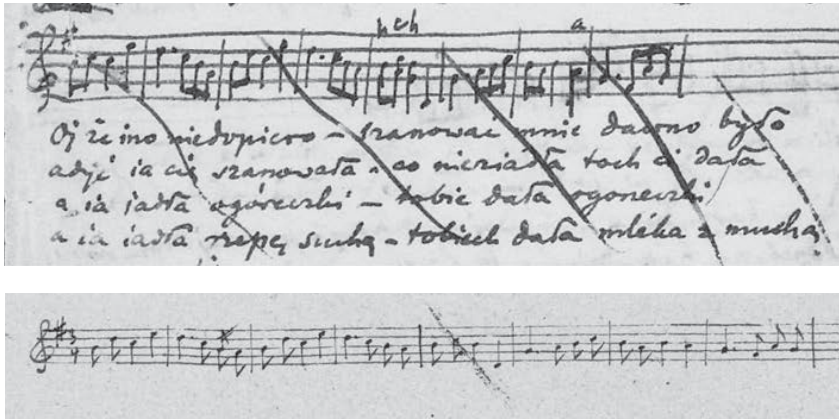 h c h a
Oj że ino niedopiero – szanować mnie dawno było
ia cię szanowała – co nieziadła toch ci dała
a ia iadła ogóreczki – tobie dała ogoneczki
a ia iadła rzepę suchą – tobiech dała mléka z muchą